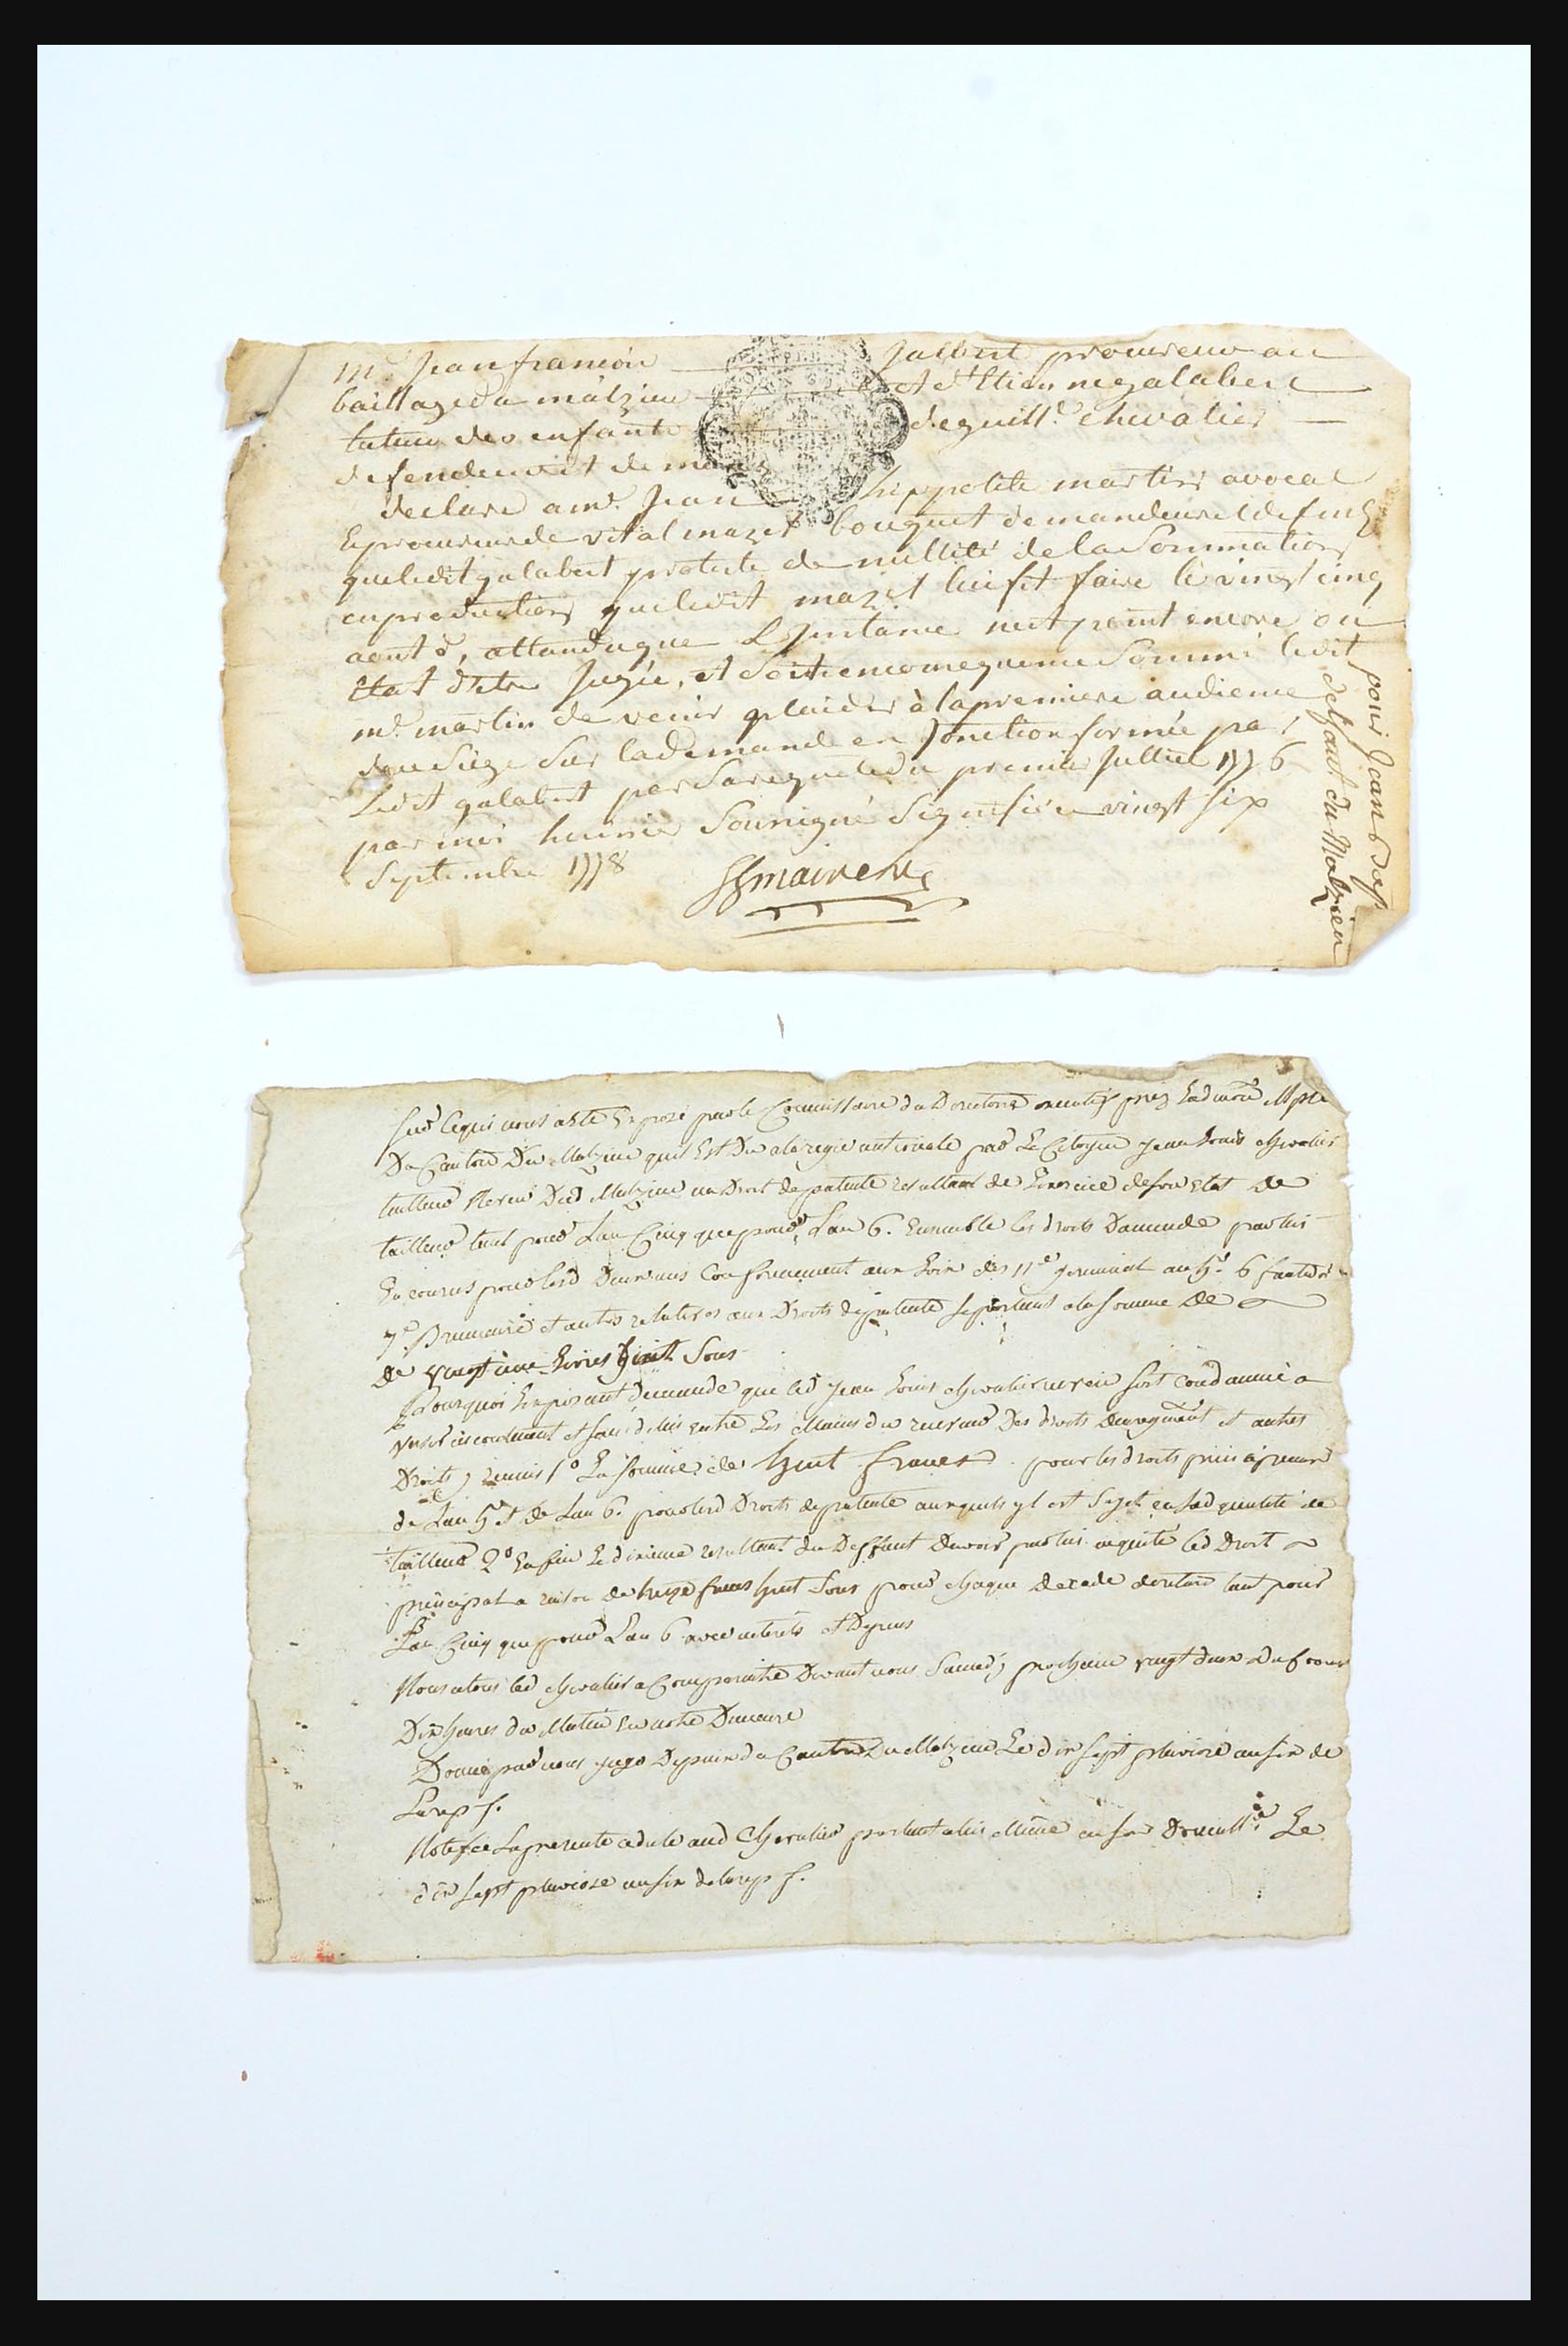 Me Jean francois Jalbert procureur au
baillage du malzieu et de st Etienne galabert
tuteur des enfants de guille chevalier
defendeur et de man
declare a me Jean hippolite martin avocat
Le procureur de vital mazet bouquet demandeur et defend
que ledit galabert proteste de nullité de la Sommation
en production que ledit mazet lui fit faire le vingt cinq
aout d, attandu que L'Instance n'est point encore en
Etat d'etre Jugée, et Soit encore que Sommé ledit
me martin de venir plaider à la premiere audience
du Siege Sur la demande en Jonction formée par
Ledit galabert par Sa requete du premier Julliet 1776
par moi huissier Soussigné Signifié vingt six
Septembre 1778
pour Jean
deffaut du Malzieu
Sur Ce qui nous a été Exposé par le Commissaire du Directoire executif prez Ladmon Mple
Du Canton Du Malzieu quil Est Du a la regie nationale par Le Citoyen Jean Louis chevalier
tailleur Du Malzieu un Droit de patente resultant de L'exercice de son Etat de
tailleur tant pour L'an Cinq que pour L'an 6. Ensemble les droits Damende par lui
Encourus pour Conformement aux Loix des 11e germinal an 5e 6 fructidor
7e Brumaire et autres relatives aux Droits de patente se portant a la somme de
de vingt une Livres huit Sous
Pourquoi L'exposant demande que led Jean Louis chevalier soit Condamné a
verser et sans delai entre Les Mains du receveur Des droits denregment et autres
Droits y reunis 1o La Somme de huit francs pour les droits principeaux
de L'an 5e et de L'an 6. pour lesd Droits de patente auxquels yl est Sujet en sad qualité de
tailleur 2o Enfin Le dixieme resultant du Deffaut Davoir par lui aquité led Droit
principal a raison de francs huit Sous pour chaque decade de retard tant pour
L'an Cinq que pour L'an 6 avec interets et Depens
Nous citons led chevalier a Comparoitre Devant nous Samedy prochain vingt deux Du Courant
Dix heures du Matin En notre Demeure
Donné par nous Juge De paix du Canton Du Malzieu Le dix sept pluviose an six de
La rep f.
Notifié La presente cedule aud Chevalier parlant a lui Même en son Domicille Le
dix Sept pluviose an six de la rep f.